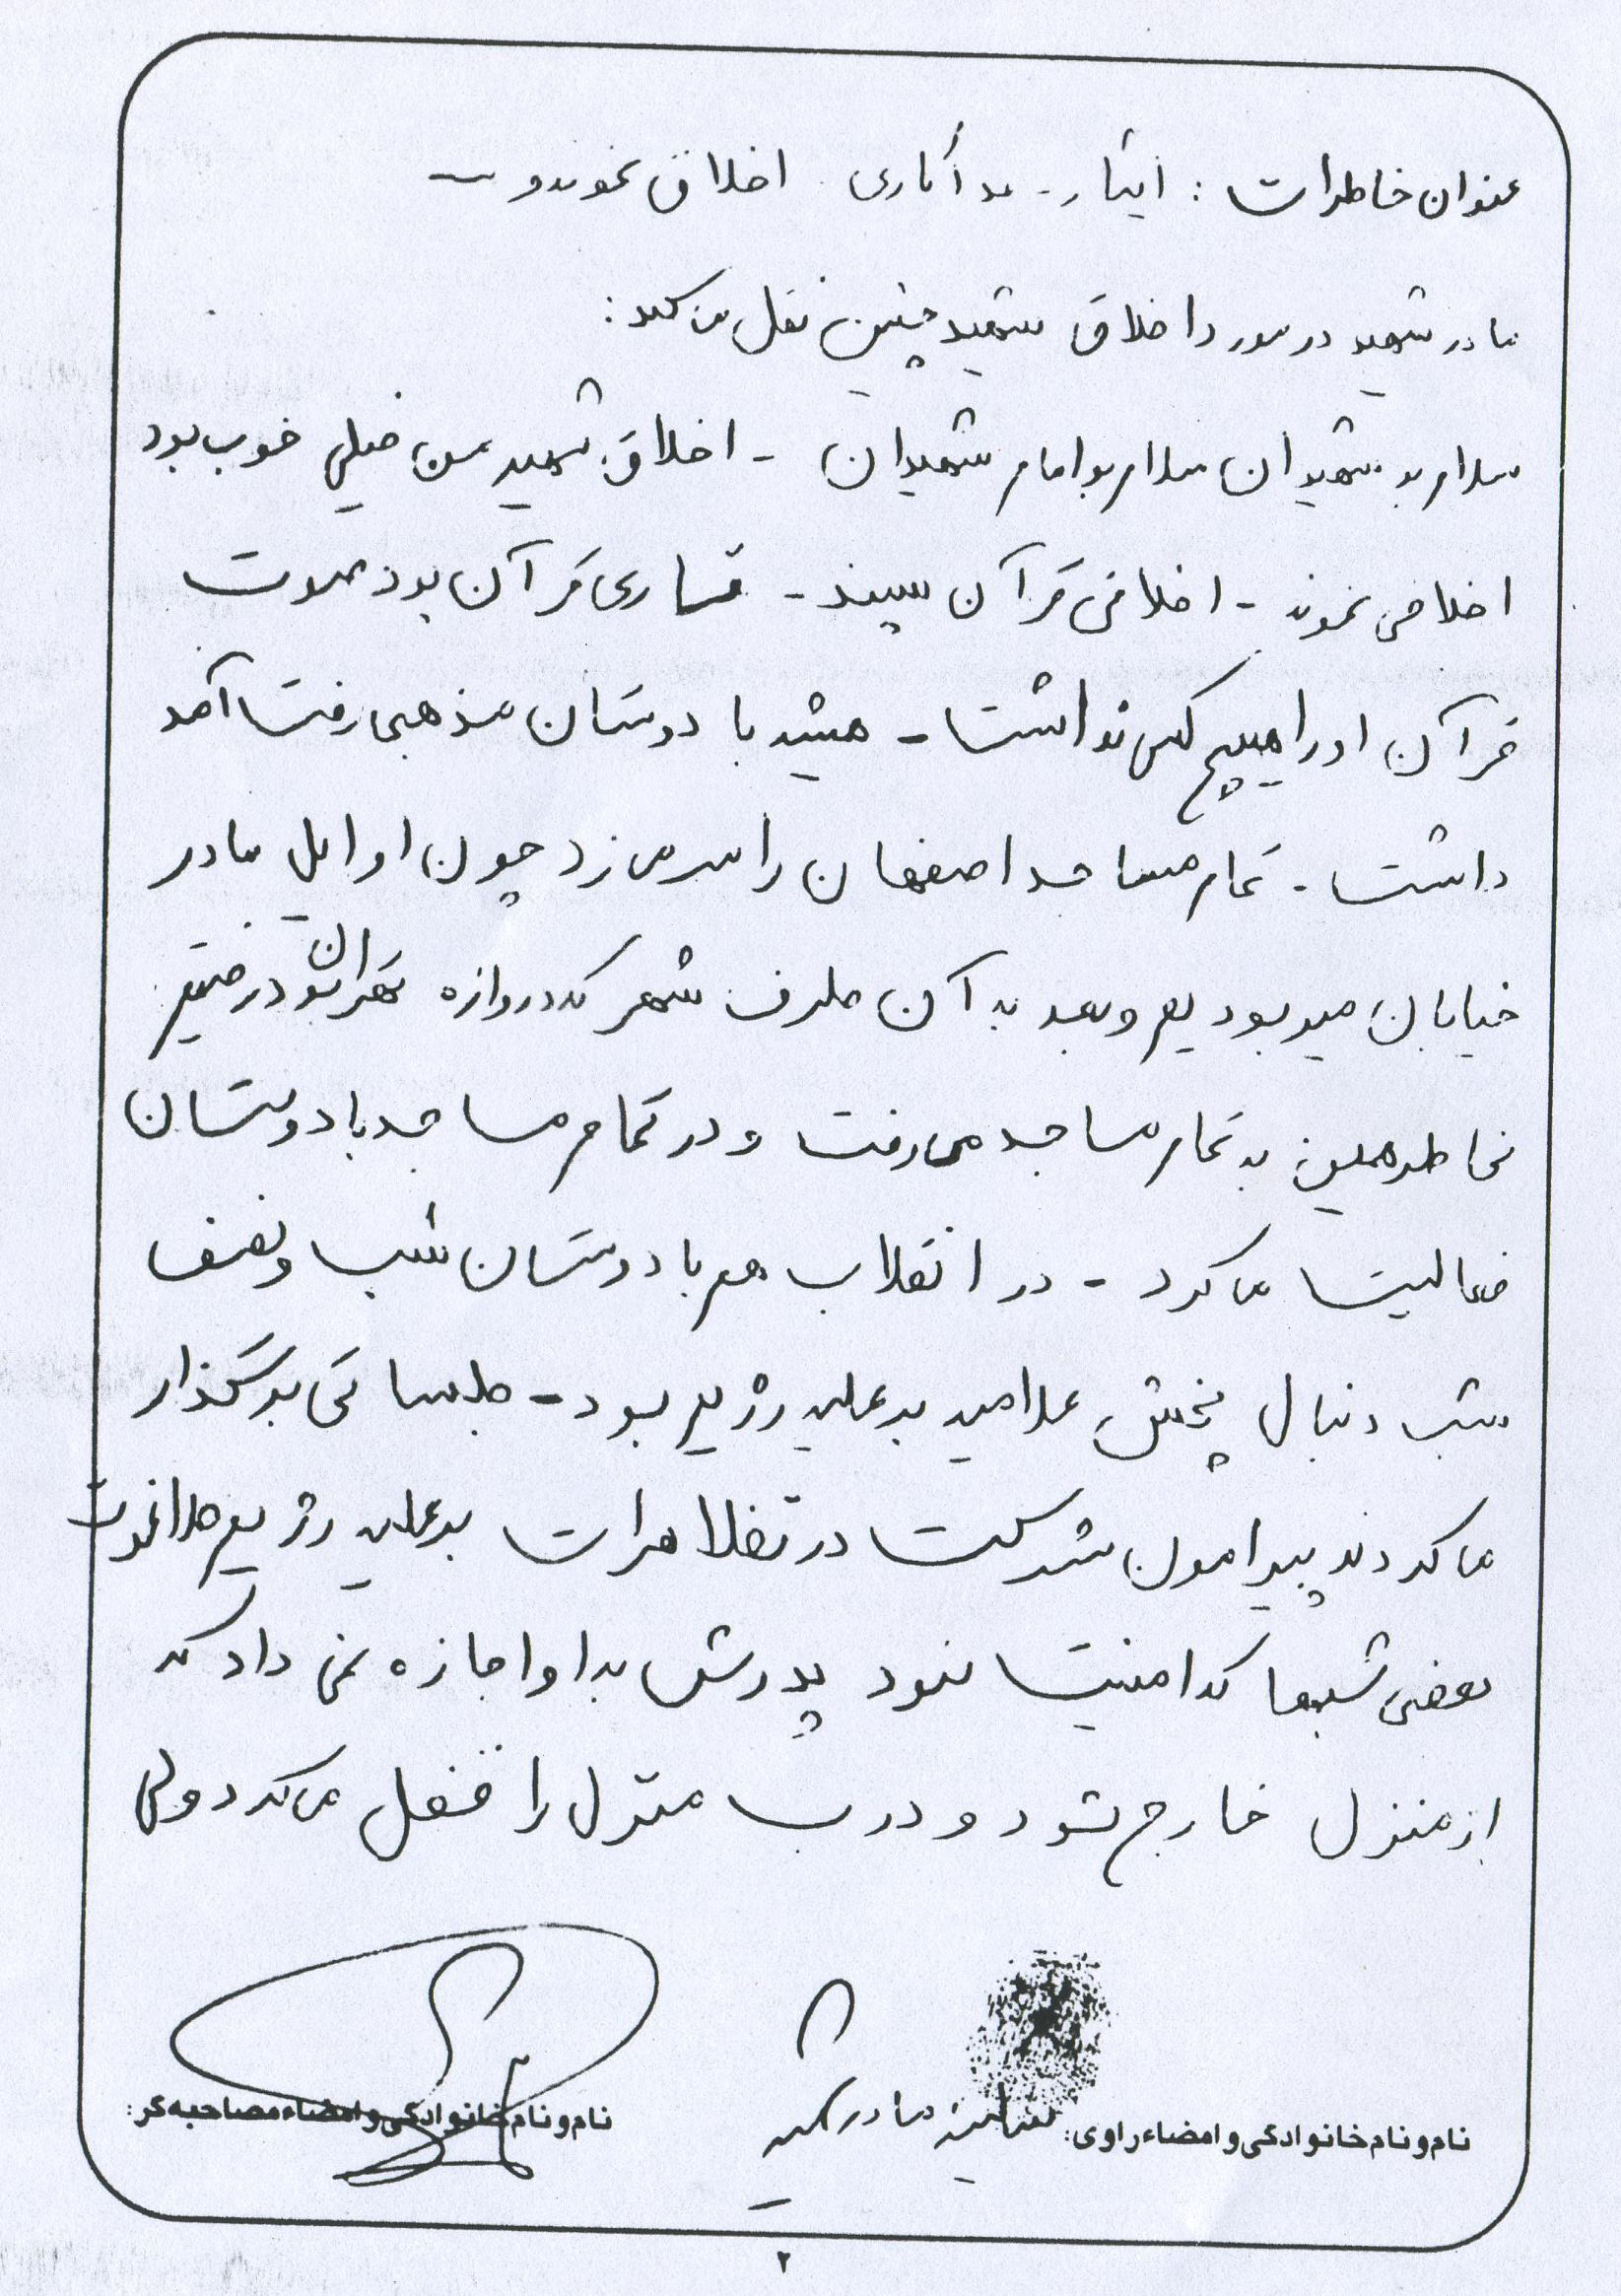 عنوان خاطرات : ایثار - فداکاری اخلاق نمونه و
مادر شهید در مورد اخلاق شهید چنین نقل می کند :
سلام بر شهیدان سلام بر امام شهیدان - اخلاق شهید من خیلی خوب بود
اخلاقی نمونه - اخلاقی قرآن پسند - قاری قرآن بود صوت
قرآن او را هیچ کس نداشت - همیشه با دوستان مذهبی رفت آمد
داشت - تمام مساجد اصفهان را سر می زد چون اوایل ما در
خیابان میر بودیم و بعد به آن طرف شهر که دروازه تهران بود رفتیم
بخاطر همین به تمام مساجد می رفت و در تمام مساجد با دوستان
فعالیت می کرد - در انقلاب هم با دوستان شب و نصف
شب دنبال پخش اعلامیه بر علیه رژیم بود - جلساتی برگذار
می کردند پیرامون شرکت در تظاهرات بر علیه رژیم طاغوت
بعضی شبها که امنیت نبود پدرش به او اجازه نمی داد که
از منزل خارج شود و درب منزل را قفل می کرد ولی
نام و نام خانوادگی و امضاء راوی : مادر شهید
نام و نام خانوادگی و امضاء مصاحبه گر :
۲